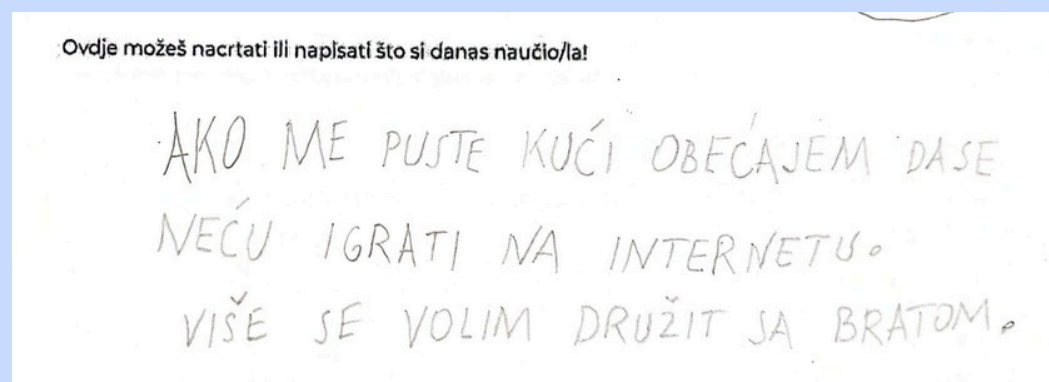 Ovdje možeš nacrtati ili napisati što si danas naučio/la!
AKO ME PUSTE KUĆI OBEĆAJEM DA SE
NEĆU IGRATI NA INTERNETU.
VIŠE SE VOLIM DRUŽIT SA BRATOM.